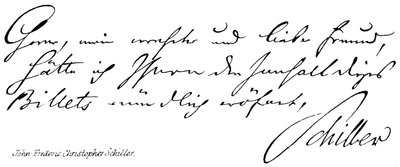 Gerne, mein verehrter und lieber Freund,
hätte ich Ihnen den Innhalt dieses
Billets mündlich eröfnet,
Schiller
John Frederic Christopher Schiller.